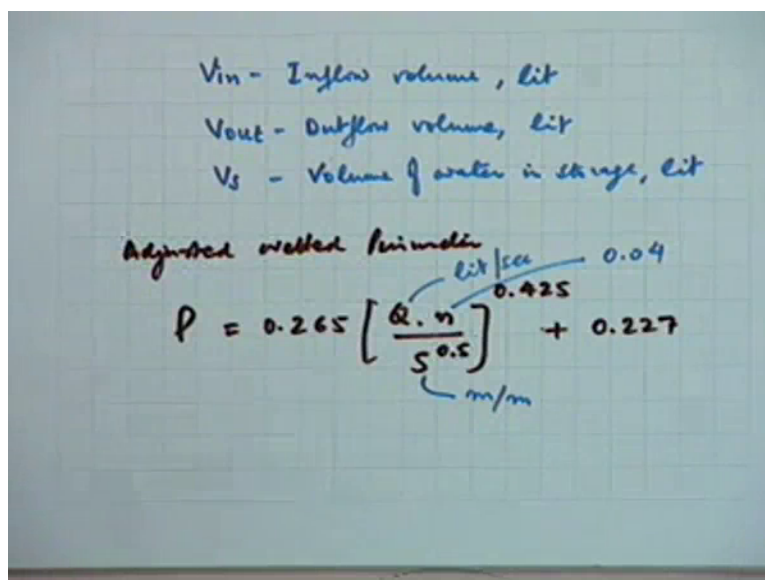 Vin - Inflow volume, lit
Vout - Outflow volume, lit
Vs - Volume of water in storage, lit
Adjusted wetted Perimeter
lit/sec 0.04
P = 0.265 [Q.n / S^0.5]^0.425 + 0.227
m/m